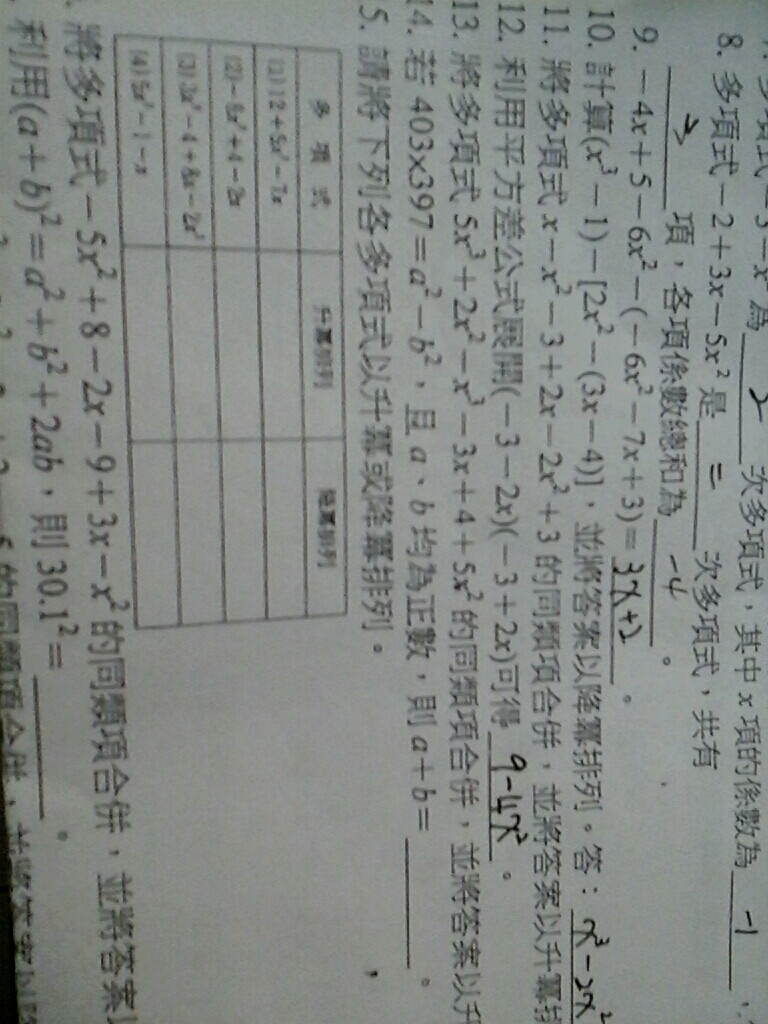 多項式 -3-x 為 2 次多項式，其中 x 項的係數為 -1
8. 多項式 -2+3x-5x² 是 二 次多項式，共有
3 項，各項係數總和為 -4 。
9. -4x+5-6x²-(-6x²-7x+3)= 3x+2 。
10. 計算(x³-1)-[2x²-(3x-4)]，並將答案以降冪排列。答： x³-2x²
11. 將多項式 x-x²-3+2x-2x²+3 的同類項合併，並將答案以升冪排
12. 利用平方差公式展開(-3-2x)(-3+2x)可得 9-4x² 。
13. 將多項式 5x³+2x²-x³-3x+4+5x² 的同類項合併，並將答案以升
14. 若 403×397=a²-b²，且 a、b 均為正數，則 a+b= 。
5. 請將下列各多項式以升冪或降冪排列。
多項式 升冪排列 降冪排列
(1) 12+5x²-7x
(2) -8x²+4-2x
(3) 3x³-4+8x-2x²
(4) 5x²-1-x
將多項式 -5x²+8-2x-9+3x-x² 的同類項合併，並將答案以
利用(a+b)²=a²+b²+2ab，則 30.1²= 。
的同類項合併，並將答案以降